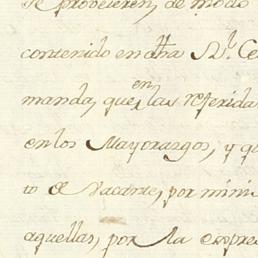 se proveieren, de modo
contenido en dha Rl. Ce
manda, que en las referida
en los Mayorazgos, y q
to de Vacante, por mini
aquellas, por la expre